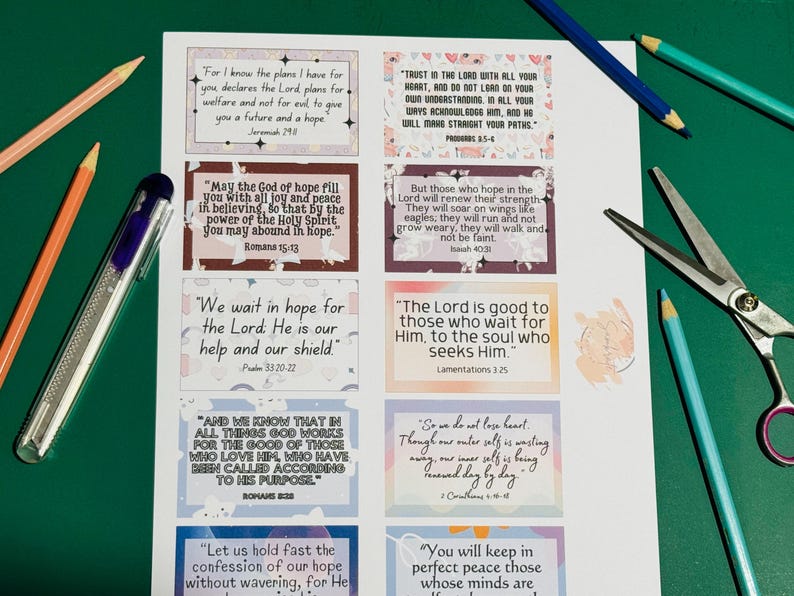 "For I know the plans I have for
you, declares the Lord, plans for
welfare and not for evil, to give
you a future and a hope."
Jeremiah 29:11
"TRUST IN THE LORD WITH ALL YOUR
HEART, AND DO NOT LEAN ON YOUR
OWN UNDERSTANDING. IN ALL YOUR
WAYS ACKNOWLEDGE HIM, AND HE
WILL MAKE STRAIGHT YOUR PATHS."
PROVERBS 3:5-6
"May the God of hope fill
you with all joy and peace
in believing, so that by the
power of the Holy Spirit
you may abound in hope."
Romans 15:13
But those who hope in the
Lord will renew their strength.
They will soar on wings like
eagles; they will run and not
grow weary, they will walk and
not be faint.
Isaiah 40:31
"We wait in hope for
the Lord; He is our
help and our shield."
Psalm 33:20-22
"The Lord is good to
those who wait for
Him, to the soul who
seeks Him."
Lamentations 3:25
"AND WE KNOW THAT IN
ALL THINGS GOD WORKS
FOR THE GOOD OF THOSE
WHO LOVE HIM, WHO HAVE
BEEN CALLED ACCORDING
TO HIS PURPOSE."
ROMANS 8:28
"So we do not lose heart.
Though our outer self is wasting
away, our inner self is being
renewed day by day."
2 Corinthians 4:16-18
"Let us hold fast the
confession of our hope
without wavering, for He
"You will keep in
perfect peace those
whose minds are